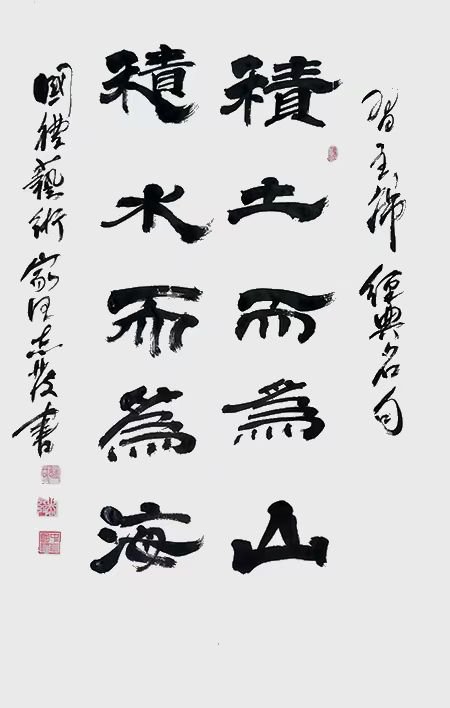 習主席 經典名句
積土而為山
積水而為海
國禮藝術家汪志書